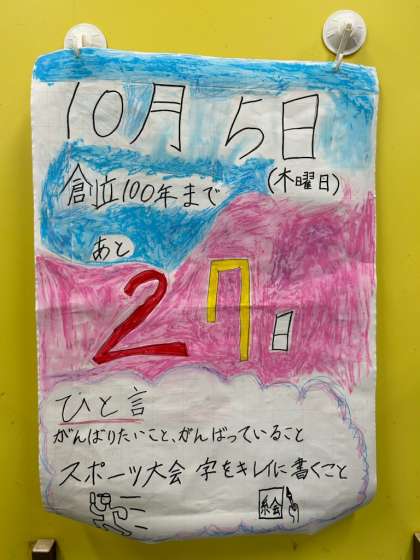 10月5日
(木曜日)
創立100年まで
あと
27日
ひと言
がんばりたいこと、がんばっていること
スポーツ大会 字をキレイに書くこと
絵